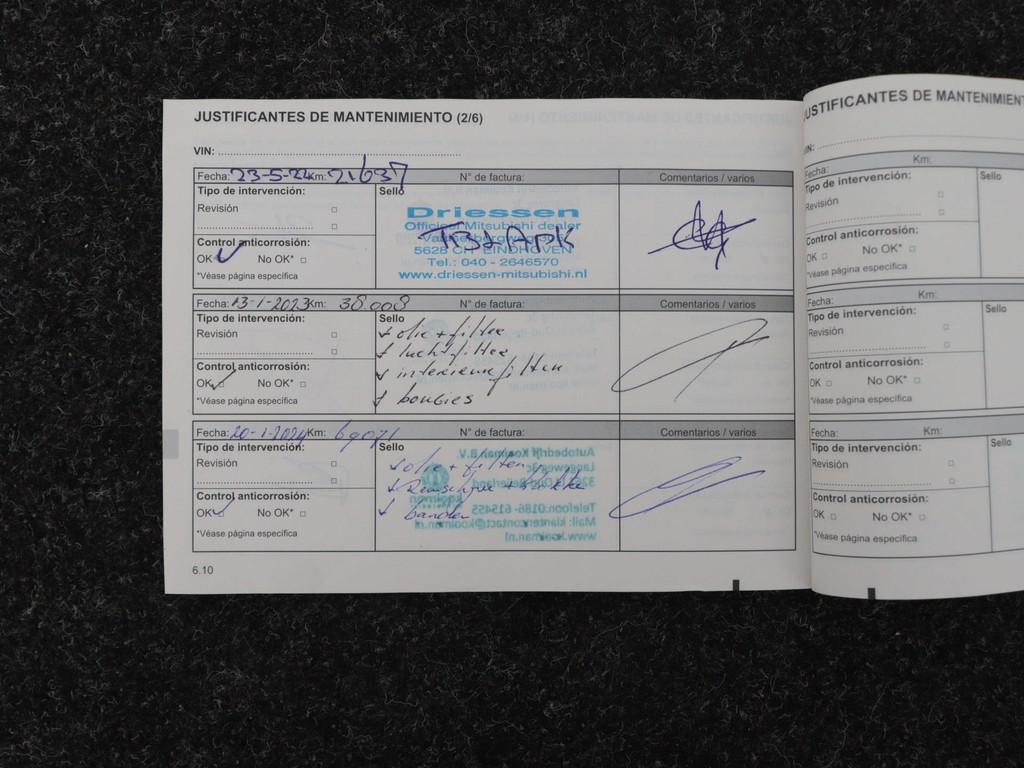 JUSTIFICANTES DE MANTENIMIENTO (2/6)
VIN:
Fecha: Km: 21637 N° de factura: Comentarios / varios
Tipo de intervención: Sello
Revisión
Driessen
Officieel Mitsubishi dealer
5628 EINDHOVEN
Tel.: 040 - 2646570
www.driessen-mitsubishi.nl
APK
Control anticorrosión:
OK No OK*
*Véase página específica
Fecha: 13-1-2023 Km: 38.008 N° de factura: Comentarios / varios
Tipo de intervención: Sello
Revisión
olie + filter
luchtfilter
interieurfilter
bougies
Control anticorrosión:
OK No OK*
*Véase página específica
Fecha: 20-1-2024 Km: 69071 N° de factura: Comentarios / varios
Tipo de intervención: Sello
Revisión
olie + filter
banden
Autobedrijf Kooiman B.V.
Langeweg
Telefoon: 0186- 615455
Mail: klantencontact@kooiman.nl
www.kooiman.nl
Control anticorrosión:
OK No OK*
*Véase página específica
6.10
JUSTIFICANTES DE MANTENIMIENT
VIN:
Fecha: Km:
Tipo de intervención: Sello
Revisión
Control anticorrosión:
OK No OK*
*Véase página específica
Fecha: Km:
Tipo de intervención: Sello
Revisión
Control anticorrosión:
OK No OK*
*Véase página específica
Fecha: Km:
Tipo de intervención: Sello
Revisión
Control anticorrosión:
OK No OK*
*Véase página específica